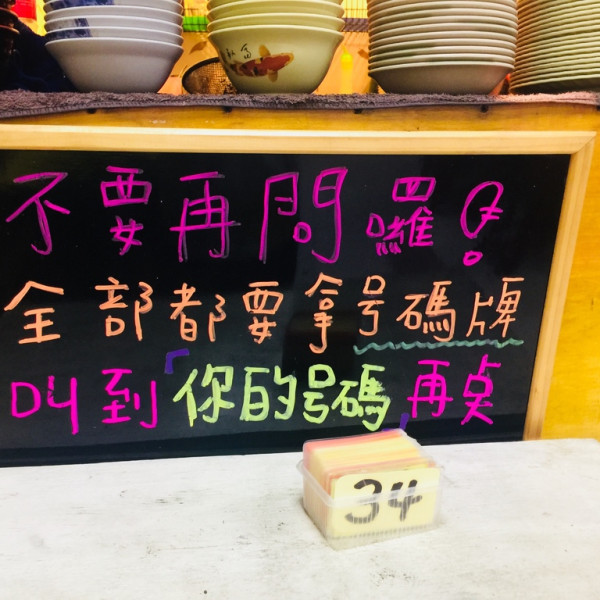 不要再問囉!
全部都要拿号碼牌
叫到「你的号碼」再桌
34